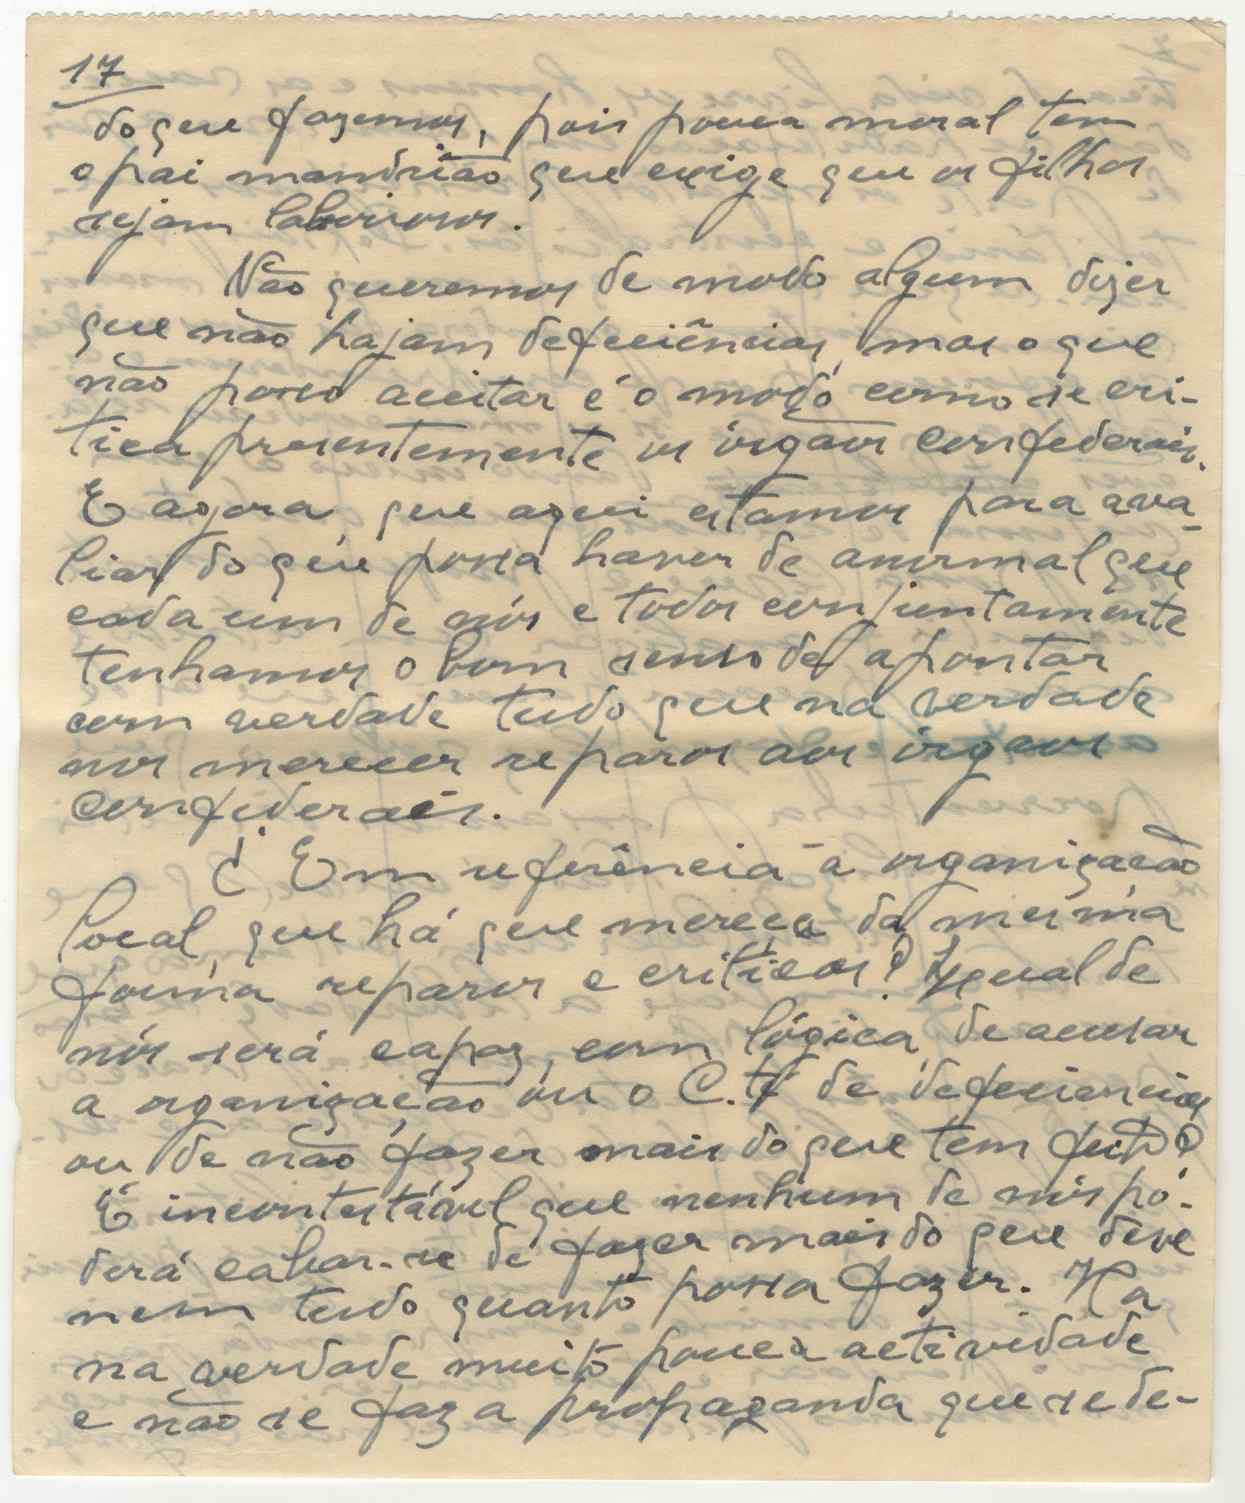 17
do que fazemos, pois pouca moral tem
o pai mandrião que exige que os filhos
sejam laboriosos.
Não queremos de modo algum dizer
que não hajam defeciências, mas o que
não posso aceitar é o modo como se cri-
tica presentemente os órgaos Confederais.
E agora que aqui estamos para ava-
liar do que possa haver de anormal que
cada um de nós e todos conjuntamente
tenhamos o bom senso de apontar
com verdade tudo que na verdade
nos merecer reparos aos órgaos
Confiderais.
¿ Em referência à organização
local, que há que mereça da mesma
forma reparos e criticas? Qual de
nós será capaz, com lógica, de acusar
a organização ou o C. de defeciencias
ou de não fazer mais do que tem feito?
É incontestável que nenhum de nós po-
derá cabar-se de fazer mais do que deve
nem tudo quanto possa fazer. Ha
na verdade muito pouca actividade
e não se faz a propaganda que se de-